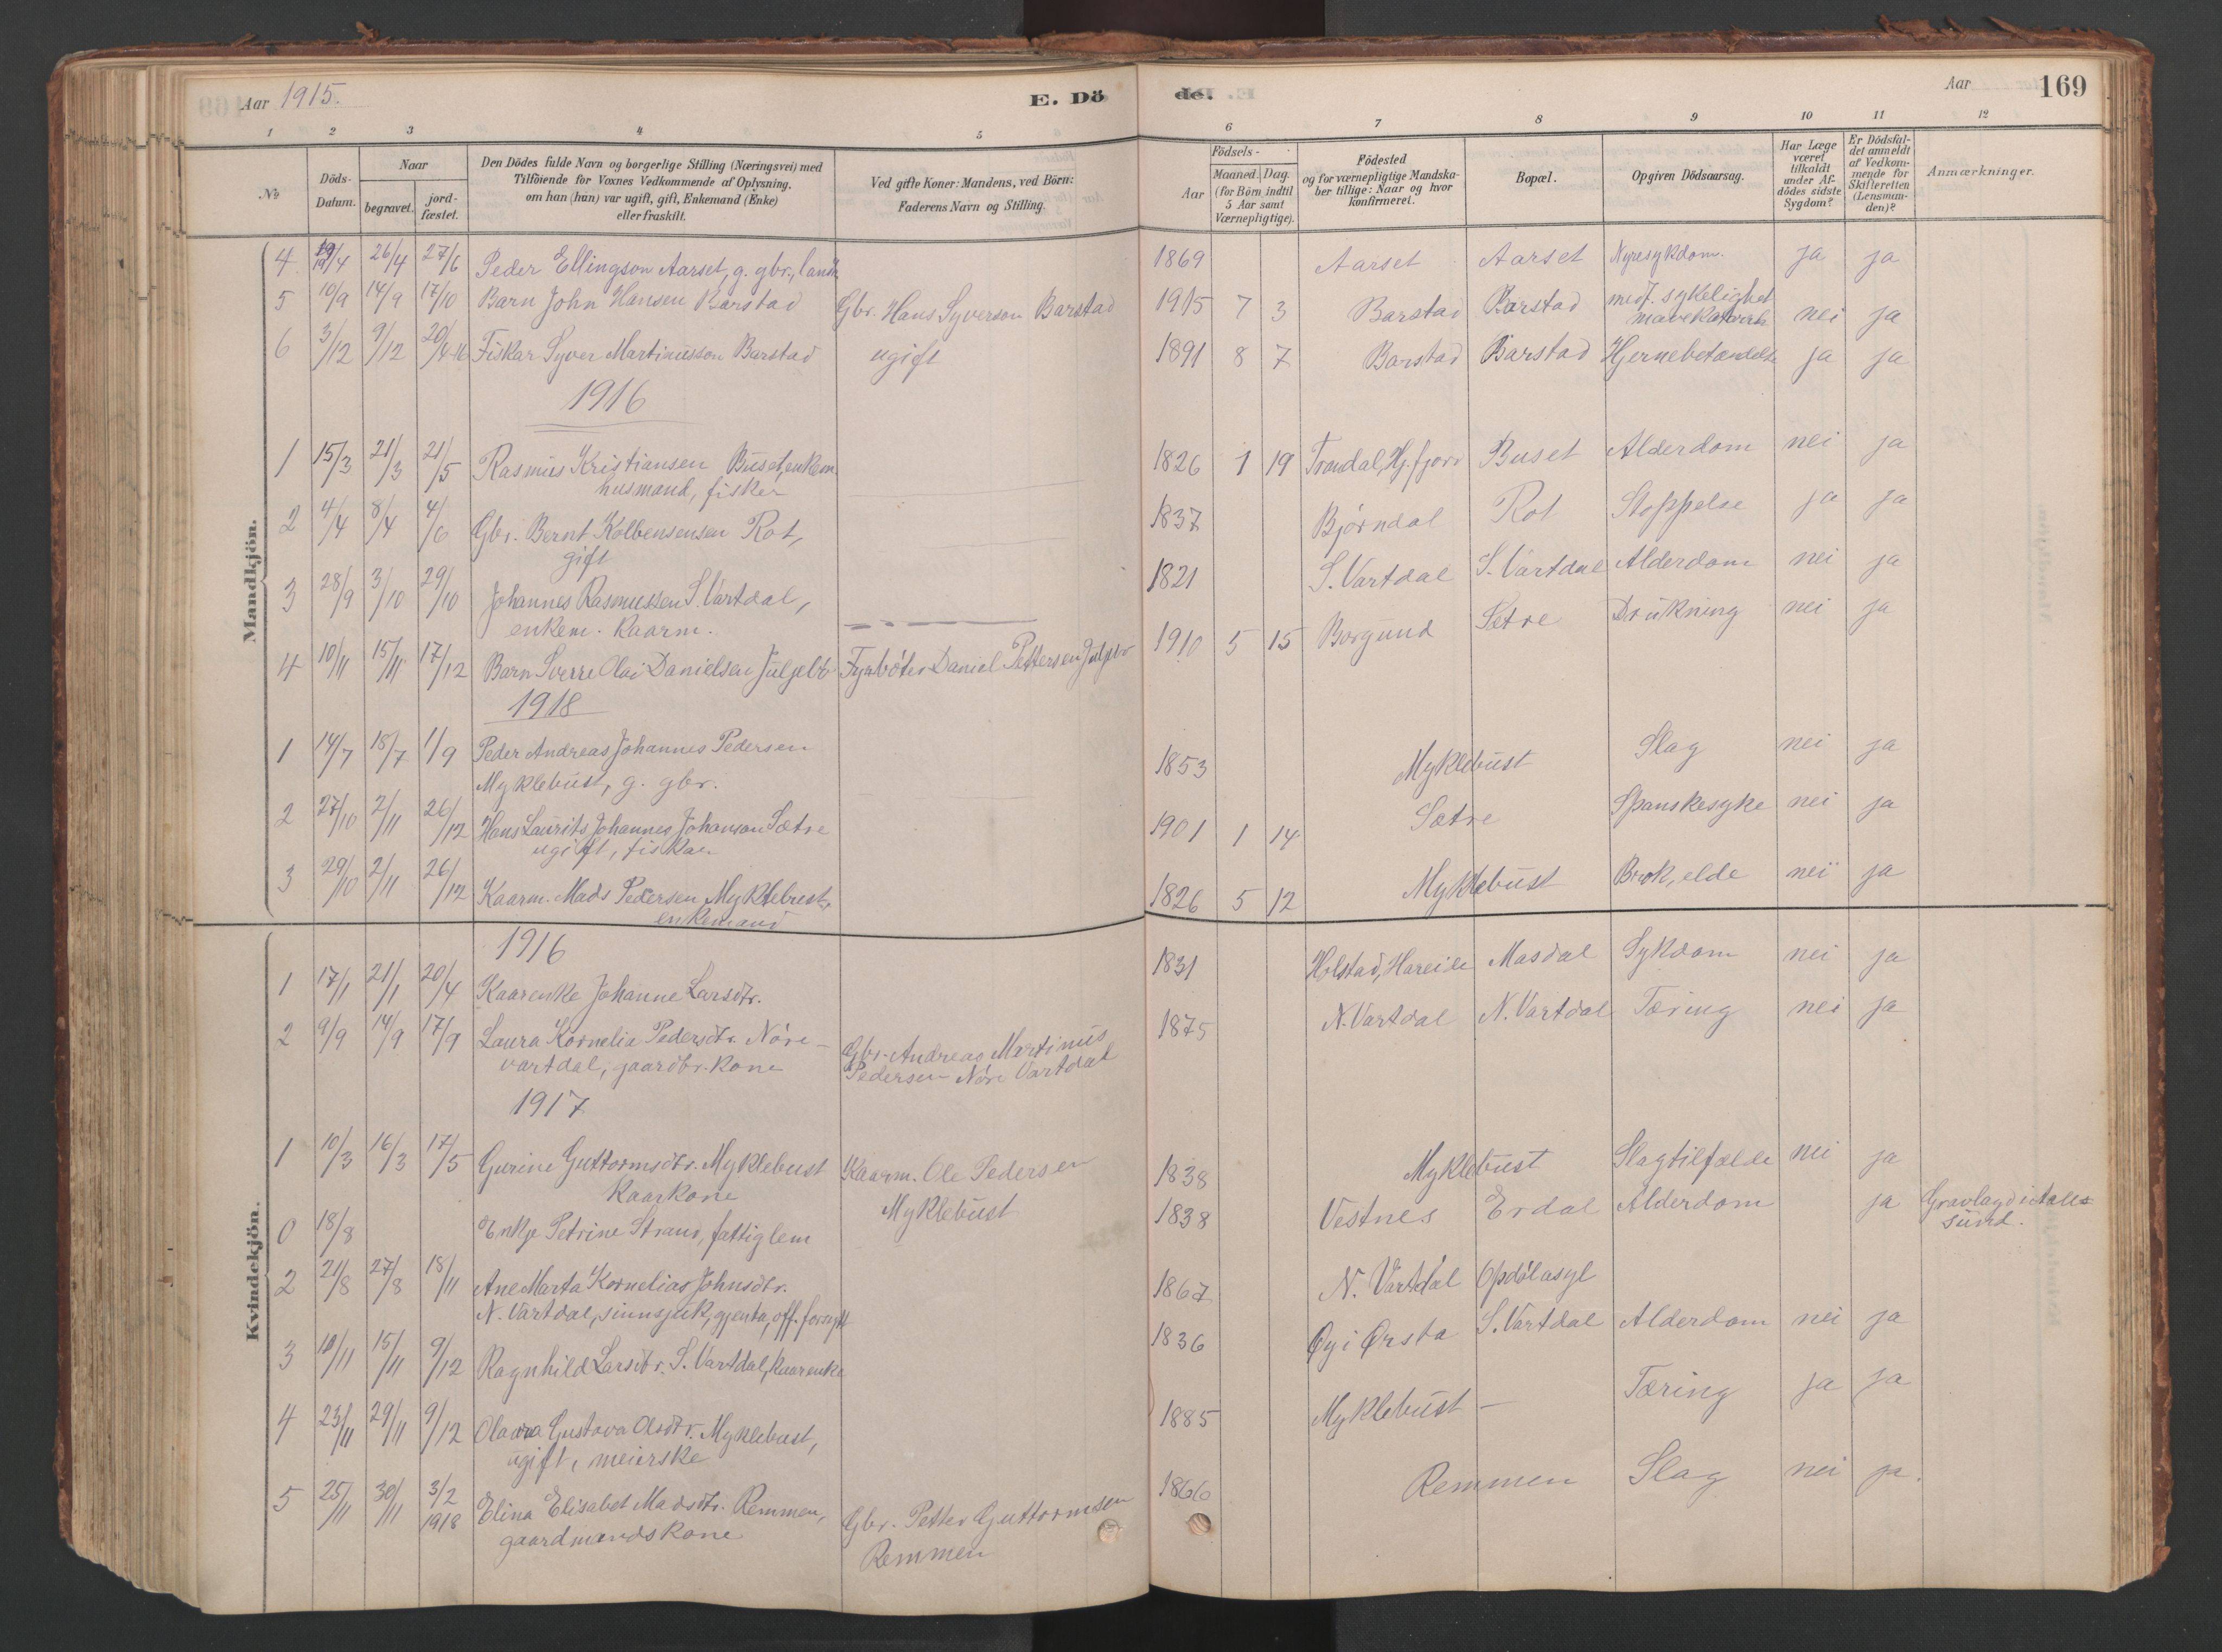 Aar 1915. E. Döde. Aar 169
1 2 3 4 5 6 7 8 9 10 11 12
No Döds-Datum. Naar begravet. jord-fæstet. Den Dödes fulde Navn og borgerlige Stilling (Næringsvei) med Tilföiende for Voxnes Vedkommende af Oplysning, om han (hun) var ugift, gift, Enkemand (Enke) eller fraskilt. Ved gifte Koner: Mandens, ved Börn: Faderens Navn og Stilling. Födsels- Aar Maaned. Dag. (for Börn indtil 5 Aar samt Værnepligtige). Födested og for værnepligtige Mandskaber tillige: Naar og hvor konfirmeret. Bopæl. Opgiven Dödsaarsag. Har Læge været tilkaldt under Afdödes sidste Sygdom? Er Dödsfaldet anmeldt af Vedkommende for Skifteretten (Lensmanden)? Anmærkninger.
Mandkjön.
4 19/4 26/4 27/6 Peder Ellingson Aarset, g. gbr., 1869 Aarset Aarset Nyresykdom. ja ja
5 10/9 14/9 17/10 Barn John Hansen Barstad Gbr. Hans Syverson Barstad 1915 7 3 Barstad Barstad medf. sykelighet
mavekatarrh nei ja
6 3/12 9/12 20/4-16 Fiskar Syver Martinusson Barstad ugift 1891 8 7 Barstad Barstad Hjernebetændelse ja ja
1916
1 15/3 21/3 21/5 Rasmus Kristiansen Buset, enkem. 1826 1 19 Trandal, Hj.fjord Buset Alderdom nei ja
husmand, fisker
2 4/4 8/4 4/6 Gbr. Bernt Kolbensensen Rot, 1837 Bjørndal Rot Stoppelse ja ja
gift
3 28/9 3/10 29/10 Johannes Rasmussen S. Vartdal, 1821 S. Vartdal S. Vartdal Alderdom nei ja
enkem. kaarm.
4 10/11 15/11 17/12 Barn Sverre Olai Danielsen Juljebø Fyrbøter Daniel Pettersen Juljebø 1910 5 15 Borgund Sætre Drukning nei ja
1918
1 14/7 18/7 1/9 Peder Andreas Johannes Pedersen 1853 Myklebust Slag nei ja
Myklebust, g. gbr.
2 27/10 2/11 26/12 Hans Laurits Johannes Johanson Sætre 1901 1 14 Sætre Spanskesyke nei ja
ugift, fiskar
3 29/10 2/11 26/12 Kaarm. Mads Pedersen Myklebust, 1826 5 12 Myklebust Brok, elde nei ja
enkemand
Kvindekjön.
1916
1 17/1 21/1 20/4 Kaarenke Johanne Larsdtr. 1831 Holstad, Hareide Masdal Sykdom nei ja
2 9/9 14/9 17/9 Laura Kornelia Pedersdtr. Nøre- Gbr. Andreas Martinus 1875 N. Vartdal N. Vartdal Tæring nei ja
vartdal, gaardbr. kone Pedersen Nøre Vartdal
1917
1 10/3 16/3 17/5 Gurine Guttormsdtr. Myklebust Kaarm. Ole Pedersen 1838 Myklebust Slagtilfælde nei ja
kaarkone Myklebust
0 18/8 Enkje Petrine Strand, fattiglem 1838 Vestnes Erdal Alderdom ja Gravlagd i Aale-
sund.
2 21/8 27/8 18/11 Ane Marta Kornelias Johnsdtr. 1867 N. Vartdal Opdøl asyl
N. Vartdal, sinnsjuk, gjenta, off. forsytt
3 10/11 15/11 9/12 Ragnhild Larsdtr. S. Vartdal, kaarenke 1836 Øy i Ørsta S. Vartdal Alderdom nei ja
4 23/11 29/11 9/12 Gustava Olsdtr. Myklebust, 1885 Myklebust - Tæring ja ja
ugift, meierske
5 25/11 30/11 3/2 1918 Elina Elisabet Madsdtr. Remmen, Gbr. Petter Guttormsen 1866 Remmen Slag nei ja.
gaardmandskone Remmen